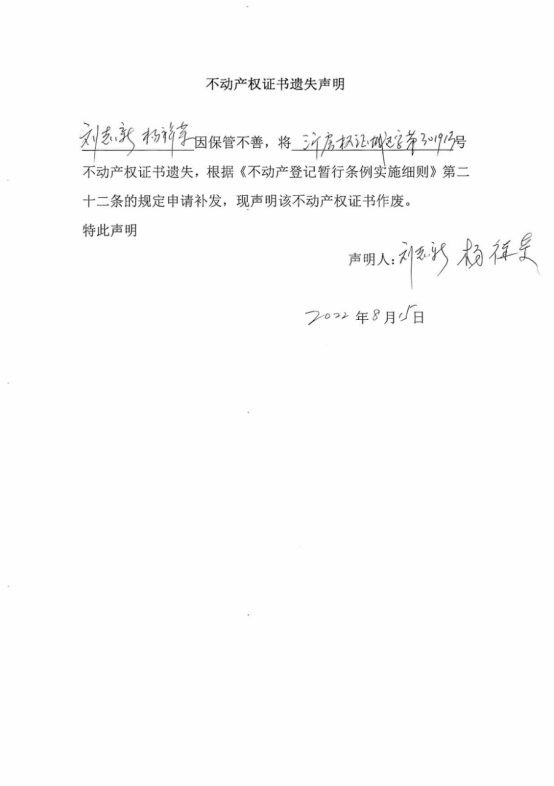 不动产权证书遗失声明
刘志新 杨 因保管不善，将 沂房权证城区字第 号
不动产权证书遗失，根据《不动产登记暂行条例实施细则》第二
十二条的规定申请补发，现声明该不动产权证书作废。
特此声明
声明人：刘志新 杨
2022 年 8 月 15 日